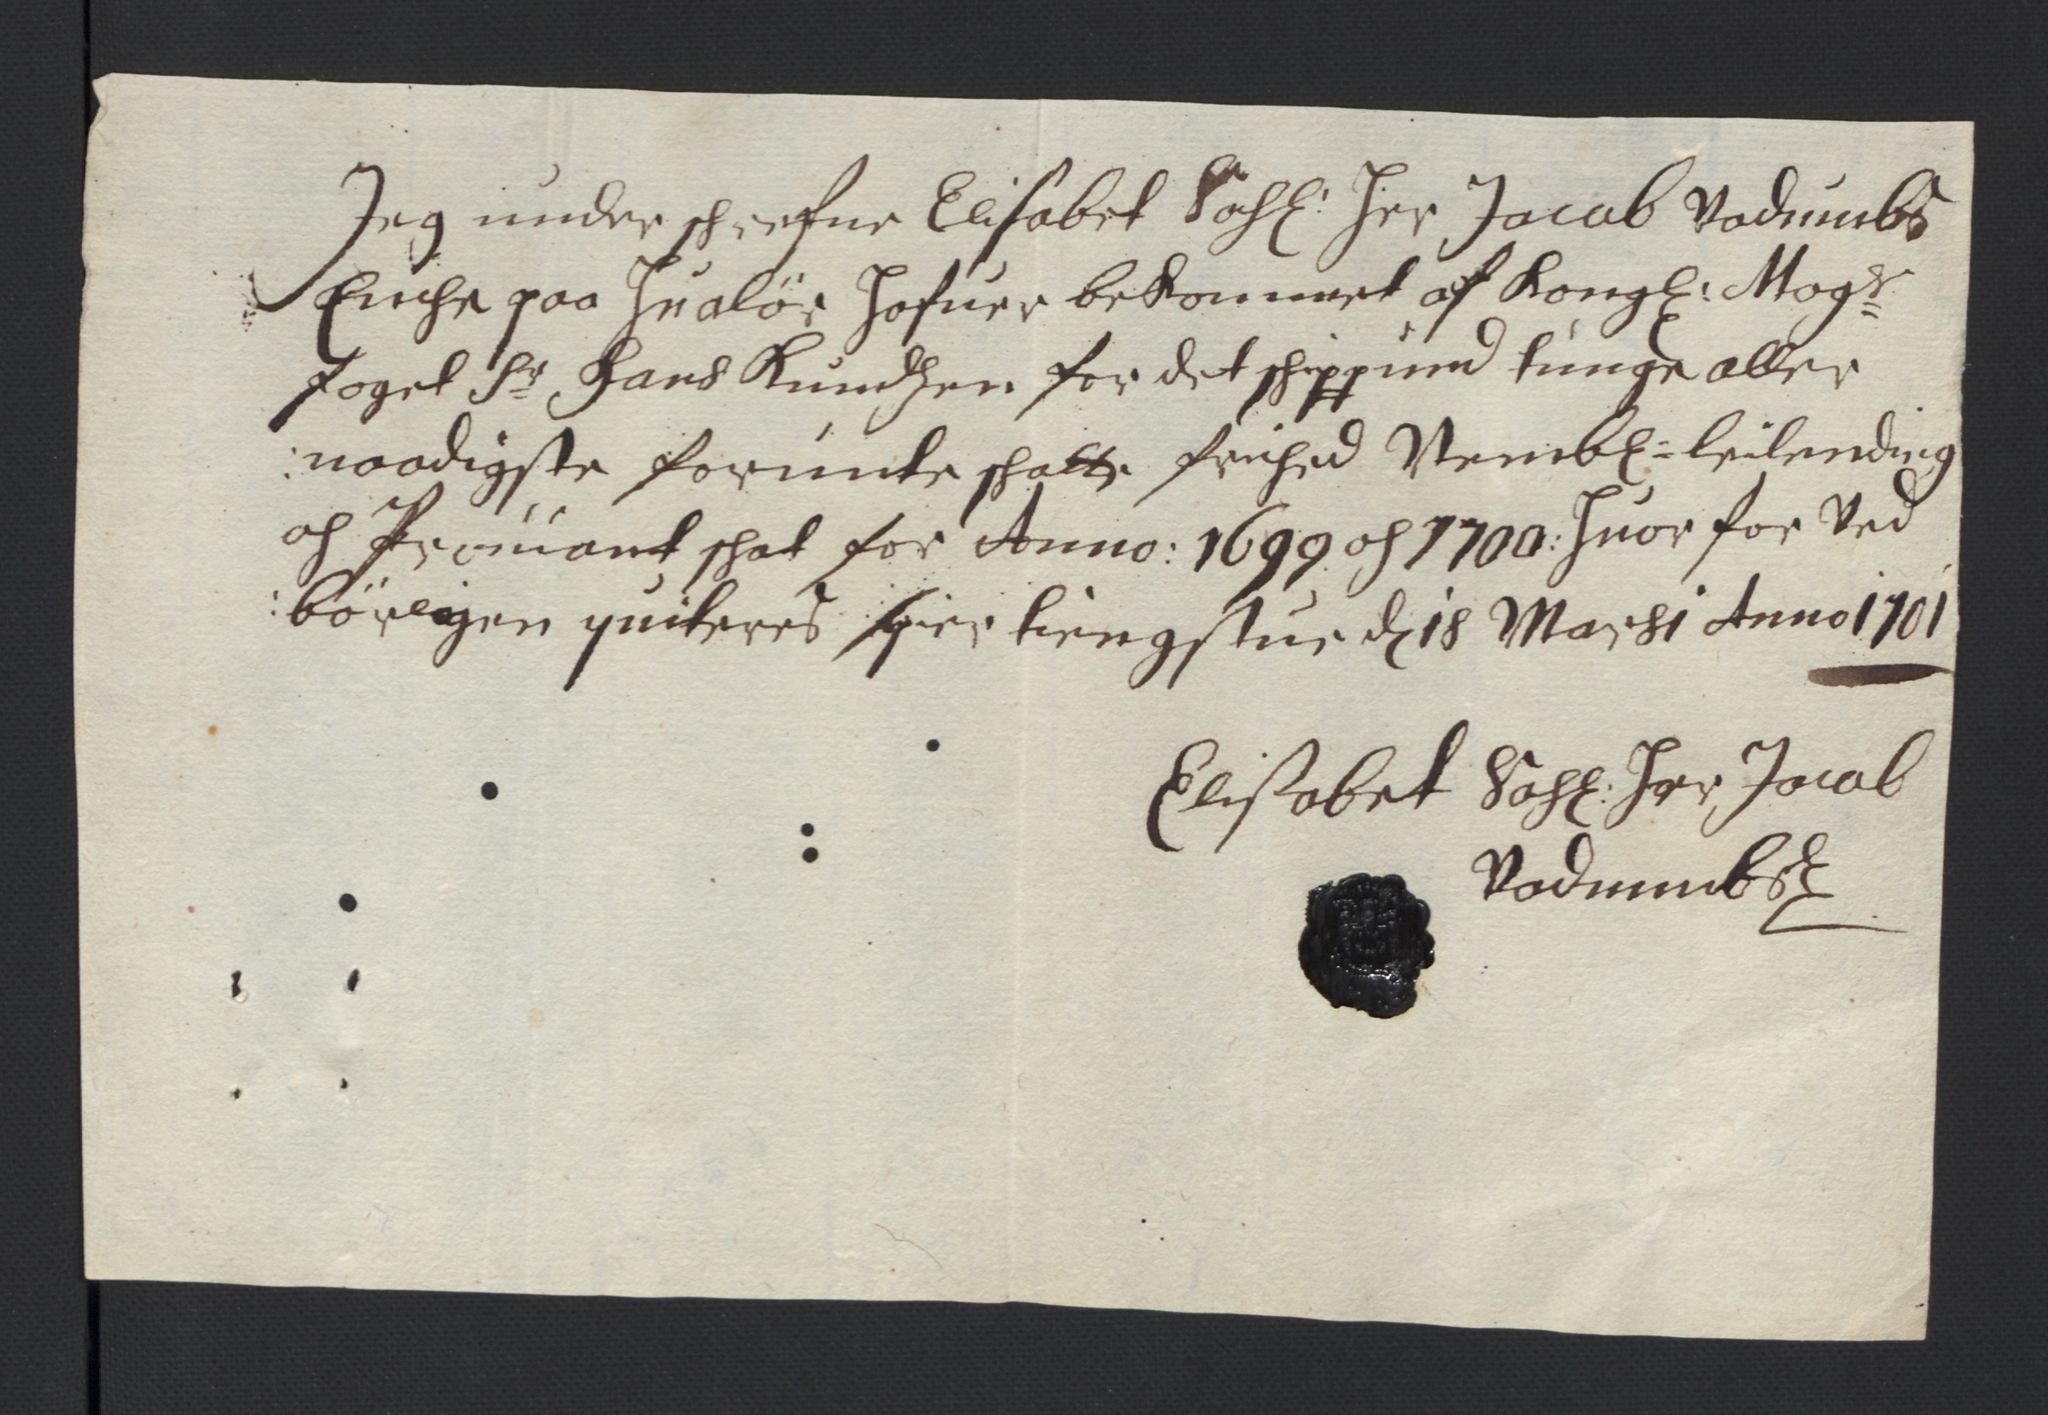 Jeg underschrefne Elisabet Sahl: Her Jacob Vadumbs
Enche paa Hualöe Hafuer bekommet af Kongl: Mays:
foget Sr Hans Knudzen for det schippund tunge aller
:naadigste forunte schatte frihed Nembl= leilending
och Prouiant schat for Anno: 1699 och 1700: Huor for Ved
:börligen quiteres hier tiengstue d 18 Marsi Anno 1701
Elisabet Sahl: Her Jacob
Vadumbs